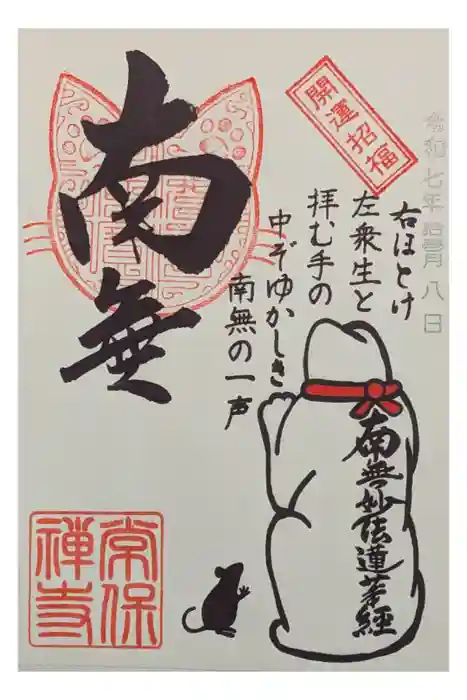 令和七年拾壹月八日
開運招福
右ほとけ
左衆生と
拝む手の
中ぞゆかしき
南無の一声
南無
南無妙法蓮華経
常保
禅寺